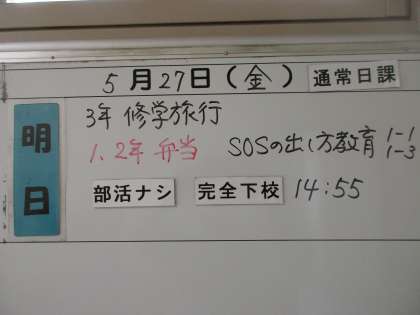 5月27日(金) 通常日課
明日
3年 修学旅行
1、2年 弁当 SOSの出し方教育 1-1 1-3
部活ナシ 完全下校 14:55